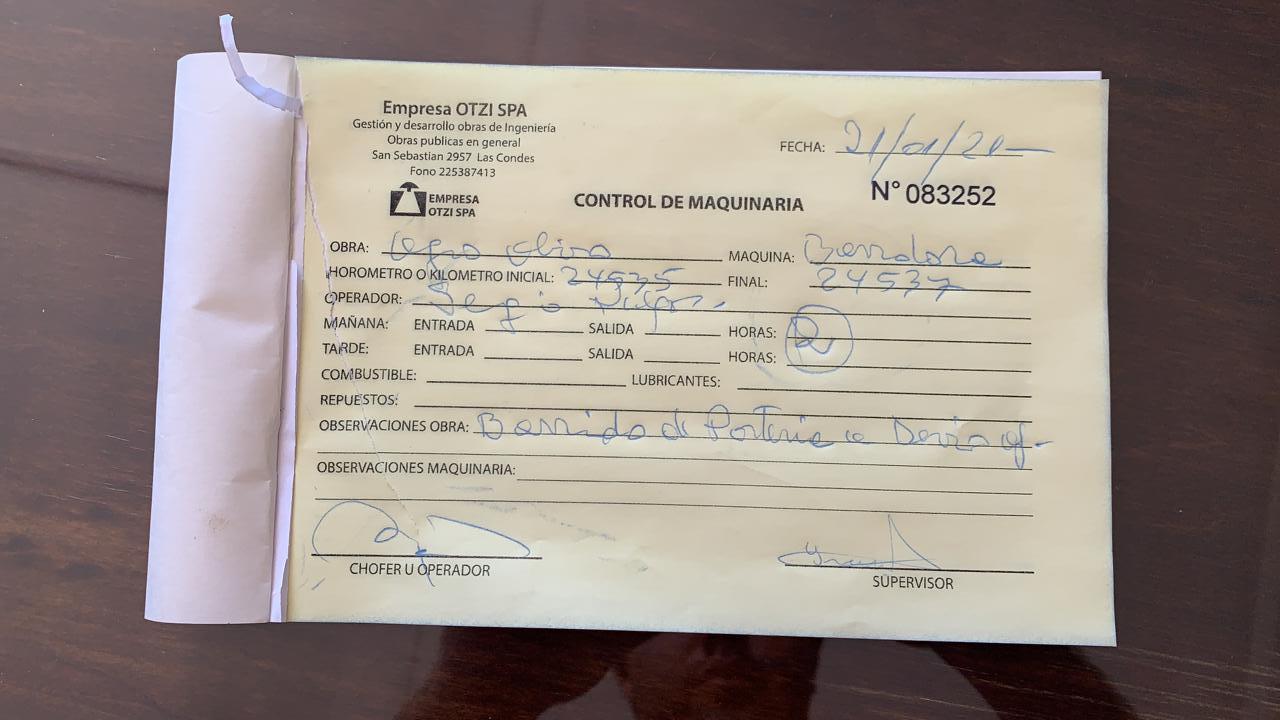 Empresa OTZI SPA
Gestión y desarrollo obras de Ingeniería
Obras publicas en general
San Sebastian 2957 Las Condes
Fono 225387413
EMPRESA
OTZI SPA
FECHA: 21/01/21
N° 083252
CONTROL DE MAQUINARIA
OBRA:
MAQUINA: Barredora
HOROMETRO O KILOMETRO INICIAL: 24535 FINAL: 24537
OPERADOR: Sergio
MAÑANA: ENTRADA SALIDA HORAS: 2
TARDE: ENTRADA SALIDA HORAS:
COMBUSTIBLE: LUBRICANTES:
REPUESTOS:
OBSERVACIONES OBRA: Barrido de Porteria a
OBSERVACIONES MAQUINARIA:
CHOFER U OPERADOR
SUPERVISOR